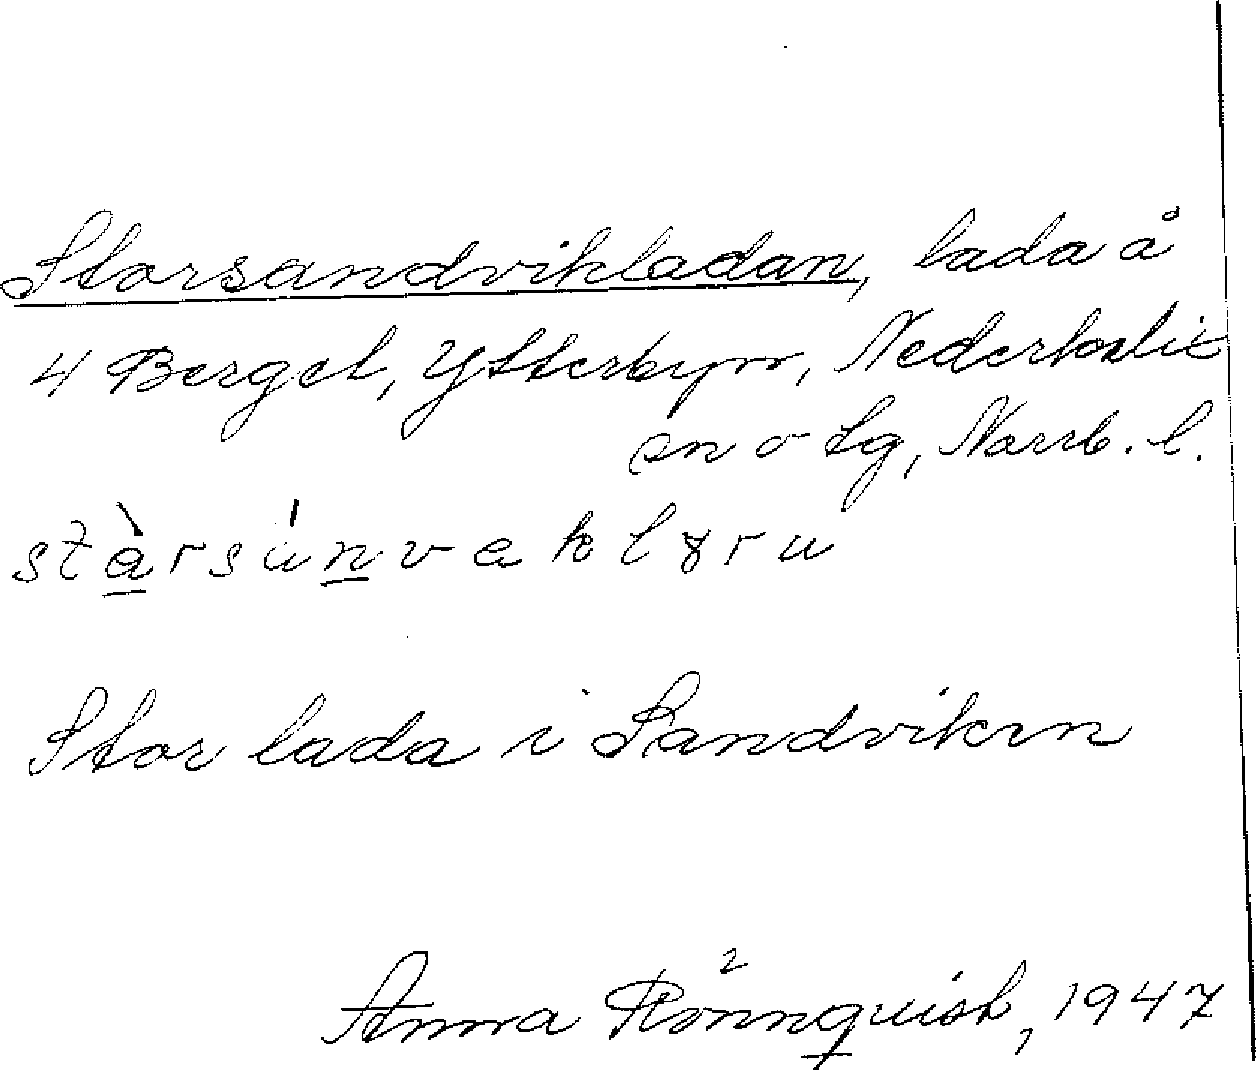 Storsandvikladan, lada å
4 Berget, Ytterbyn, Nederkalix
sn o tg, Norrb. l.
Stor lada i Sandviken
Anna Rönnquist, 1947